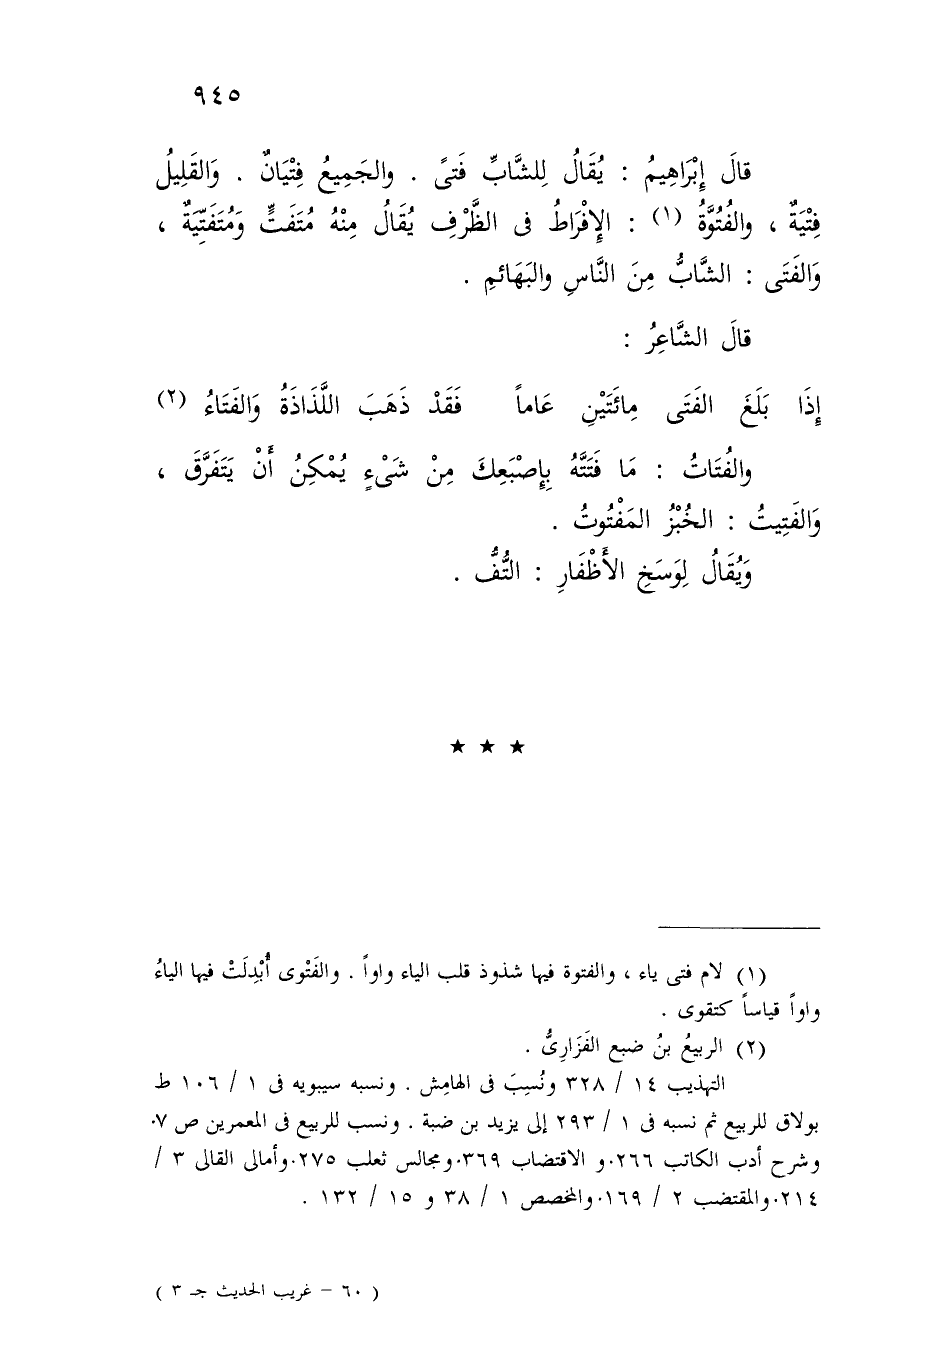 ٩٤٥
قالَ إِبْرَاهِيمُ : يُقَالُ لِلشَّابِّ فَتىً . والجَمِيعُ فِتْيَانٌ . وَالقَلِيلُ
فِتْيَةٌ ، والفُتُوَّةُ (١) : الإِفْرَاطُ فى الظَّرْفِ يُقَالُ مِنْهُ مُتَفَتٍّ وَمُتَفَتِّيَةٌ ،
وَالفَتَى : الشَّابُّ مِنَ النَّاسِ والبَهَائمِ .
قالَ الشَّاعِرُ :
إِذَا بَلَغَ الفَتَى مِائَتَيْنِ عَاماً فَقَدْ ذَهَبَ اللَّذَاذَةُ وَالفَتَاءُ (٢)
والفُتَاتُ : مَا فَتَتَّهُ بِإِصْبَعِكَ مِنْ شَىْءٍ يُمْكِنُ أَنْ يَتَفَرَّقَ ،
وَالفَتِيتُ : الخُبْزُ المَفْتُوتُ .
وَيُقَالُ لِوَسَخِ الأَظْفَارِ : التُّفُّ .
★ ★ ★
(١) لام فتى ياء ، والفتوة فيها شذوذ قلب الياء واواً . والفَتْوى أُبْدِلَتْ فيها الياءُ
واواً قياساً كتقوى .
(٢) الربيعُ بنُ ضبع الفَزَارِىُّ .
التهذيب ١٤ / ٣٢٨ ونُسِبَ فى الهامِش . ونسبه سيبويه فى ١ / ١٠٦ ط
بولاق للربيع ثم نسبه فى ١ / ٢٩٣ إلى يزيد بن ضبة . ونسب للربيع فى المعمرين ص ٧.
وشرح أدب الكاتب ٢٦٦. و الاقتضاب ٣٦٩. ومجالس ثعلب ٢٧٥. وأمالى القالى ٣ /
٢١٤. والمقتضب ٢ / ١٦٩. والمخصص ١ / ٣٨ و ١٥ / ١٣٢ .
( ٦٠ – غريب الحديث جـ ٣ )